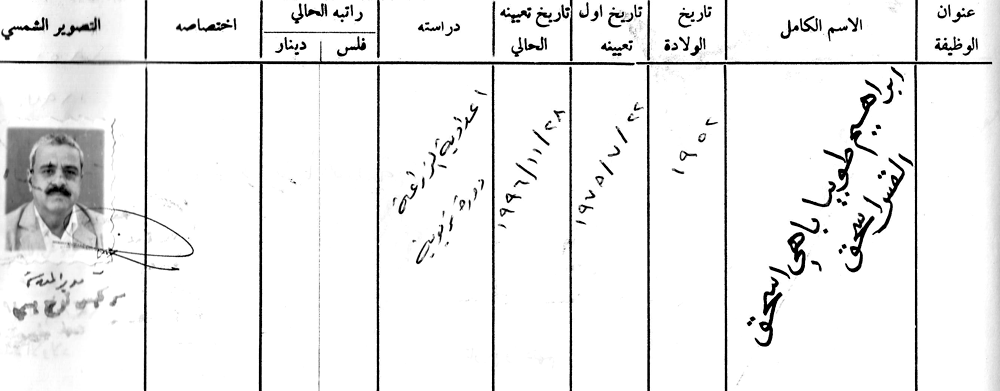 عنوان الوظيفة
الاسم الكامل
تاريخ الولادة
تاريخ اول تعيينه
تاريخ تعيينه الحالي
دراسته
راتبه الحالي
فلس
دينار
اختصاصه
التصوير الشمسي
ابراهيم طوبيا باهي اسحق
القس اسحق
١٩٥٢
١٩٧٥/٧/٢٢
١٩٩٦/١١/٢٨
اعدادية الزراعة
دورة تربوية